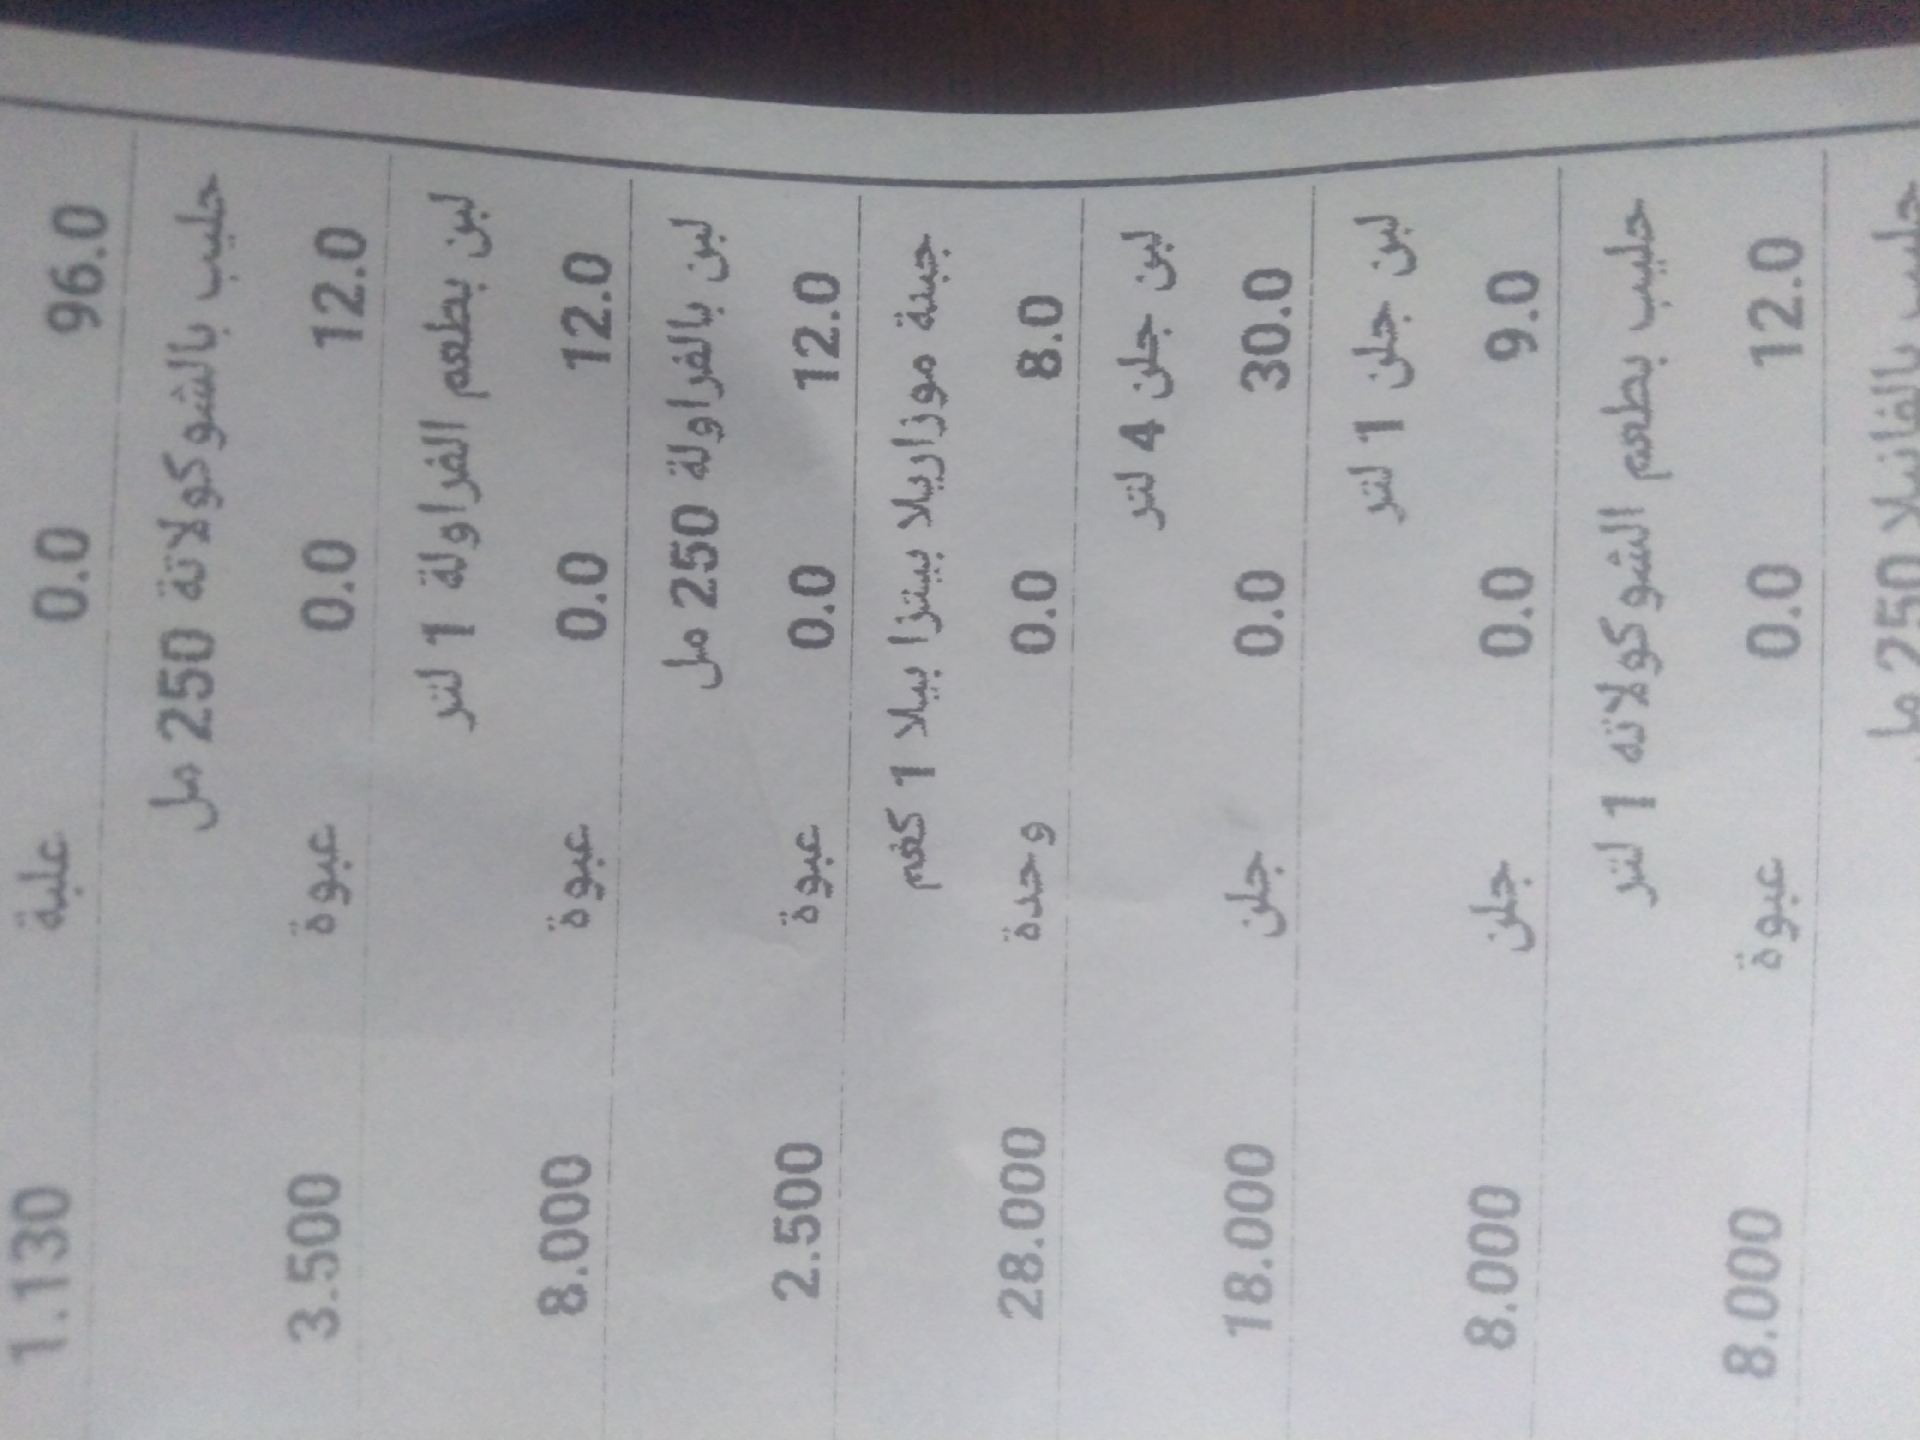 96.0 0.0 علبة 1.130
حليب بالشوكولاتة 250 مل
12.0 0.0 عبوة 3.500
لبن بطعم الفراولة 1 لتر
12.0 0.0 عبوة 8.000
لبن بالفراولة 250 مل
12.0 0.0 عبوة 2.500
جبنة موزاريلا بيتزا بيلا 1 كغم
8.0 0.0 وحدة 28.000
لبن جلن 4 لتر
30.0 0.0 جلن 18.000
لبن جلن 1 لتر
9.0 0.0 جلن 8.000
حليب بطعم الشوكولاته 1 لتر
12.0 0.0 عبوة 8.000
حليب بالفانيلا 250 مل